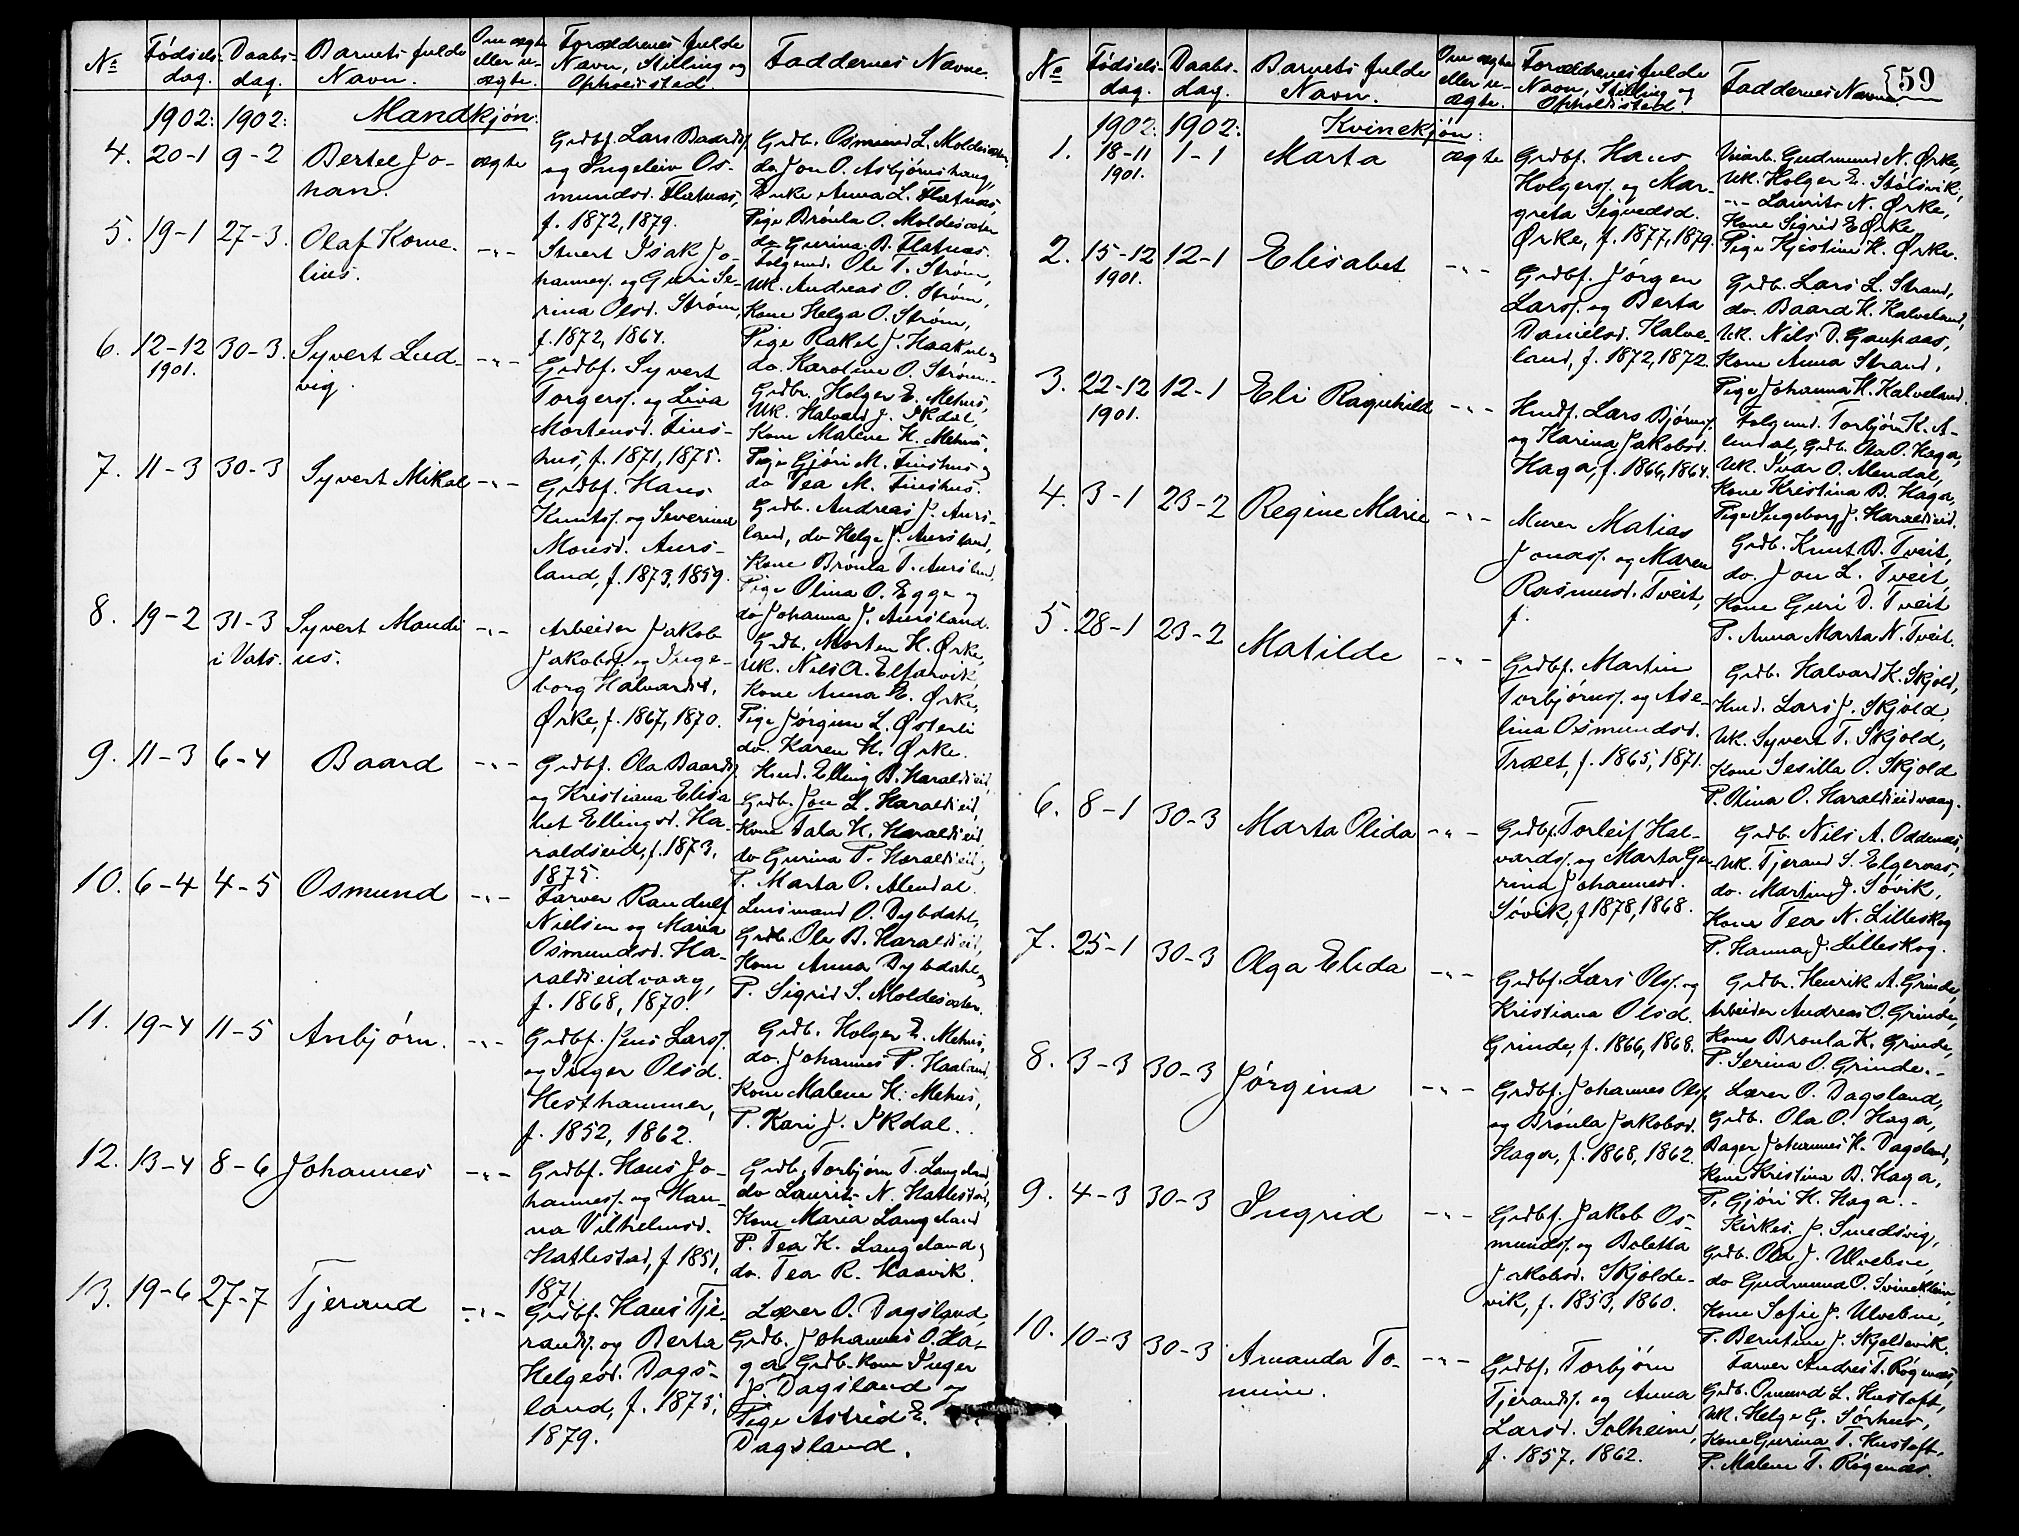 №
Fødsels-
dag.
Daabs-
dag.
Barnets fulde
Navn.
Om ægte
eller u-
ægte.
Forældrenes fulde
Navn, Stilling og
Opholdssted.
Faddernes Navne.
1902: 1902:
Mandkjøn:
4. 20-1 9-2 Bertel Jo-
han.
ægte
Grdbf. Lars Baards.
og Ingeleiv Os-
mundsd. Flatnæs,
f. 1872, 1879.
Grdb. Osmund L. Moldesæter,
do. Jon O. Asbjørnshaug,
Enke Anna L. Flatnæs,
Pige Brønla O. Moldesæter
do. Gurina B. Flatnæs.
5. 19-1 27-3. Olaf Korne-
lius.
-"-
Stuert Isak Jo-
hannes. og Guri Se-
rina Olsd. Strøm,
f. 1872, 1864.
Folgemd. Ole T. Strøm,
Uk. Andreas O. Strøm,
Kone Helga O. Strøm,
Pige Rakel J. Haakul og
do. Karoline O. Strøm.
6. 12-12 30-3. Syvert Lud-
1901.
vig.
-"-
Grdbf. Syvert
Torgers. og Liva
Mortensd. Fins-
hus, f. 1871, 1875.
Grdbr. Holger E. Mehus,
Uk. Halvard J. Skdal,
Kone Malene H. Mehus,
Pige Gjøri M. Finshus og
do Tea M. Finshus.
7. 11-3 30-3 Syvert Mikal -"-
Grdbf. Hans
Knuts. og Severina
Monsd. Aurs-
land, f. 1873, 1859.
Grdb. Andreas J. Aurs-
land, do Helge J. Aursland,
Kone Brønla T. Aursland,
Pige Olina O. Egge og
do Johanna J. Aursland.
8. 19-2 31-3 Syvert Mandi
i Vats. us.
-"-
Arbeider Jakob
Jakobs. og Inge-
borg Halvardsd.
Ørke, f. 1867, 1870.
Grdb. Morten H. Ørke,
Uk. Nils A. Elfarvik,
Kone Anna E. Ørke,
Pige Jørgine L. Østerli
do. Karen H. Ørke.
9. 11-3 6-4 Baard -"-
Grdbf. Ola Baards.
og Kristiana Elisa
bet Ellingsd. Ha-
raldseid, f. 1873,
1875.
Husd. Elling B. Haraldseid,
Grdb. Jon L. Haraldseid,
Kone Tala H. Haraldseid,
do Gurina P. Haraldseid og
P. Marta O. Alendal.
10. 6-4 4-5 Osmund -"-
Farver Randulf
Nielsen og Maria
Osmundsd. Ha-
raldseidvaag,
f. 1868, 1870.
Lensmand O. Dybdahl,
Grdb. Ole B. Haraldseid,
Kone Anna Dybdahl og
P. Sigrid S. Moldesæter.
11. 19-4 11-5 Anbjørn. -"-
Grdbf. Jens Lars.
og Inger Olsd.
Hesthammer,
f. 1852, 1862.
Grdb. Holger E. Mehus,
do. Johannes P. Haaland,
Kone Malene H. Mehus,
P. Kari J. Skdal.
12. 13-4 8-6 Johannes -"-
Grdbf. Hans Jo-
hannes. og Han-
na Vilhelmsd.
Hatlestad, f 1851,
1871.
Grdb. Torbjørn T. Langeland,
do Laurits N. Hatlestad,
Kone Maria Langeland
P. Tea K. Langeland og
do. Tea R. Haavik.
13. 19-6 27-7 Tjerand -"-
Grdbf. Hans Tje-
rands. og Berta
Helgesd. Dags-
land, f. 1875,
1879.
Lærer O. Dagsland,
Grdb. Johannes O. Ha-
ga, Grdb. kone Inger
J. Dagsland og
Pige Astrid E.
Dagsland.
№
Fødsels-
dag.
Daabs-
dag.
Barnets fulde
Navn.
Om ægte
eller u-
ægte.
Forældrenes fulde
Navn, Stilling og
Opholdssted.
Faddernes Navne.
59
1902: 1902:
Kvinekjøn:
1. 18-11 1-1 Marta ægte
1901.
Grdbf. Hans
Holgers. og Mar-
greta Sigvedsd.
Ørke, f. 1877, 1879.
Veiarb. Gudmund N. Ørke,
Uk. Holger E. Stølsvik,
-"- Laurits N. Ørke,
Kone Sigrid E Ørke
Pige Kjistine H. Ørke.
2. 15-12 12-1 Elisabet -"-
1901.
Grdbf. Jørgen
Lars. og Berta
Danielsd. Kalve-
land, f. 1872, 1872.
Grdb. Lars L. Strand,
do. Baard K. Kalveland,
Uk. Nils D. Gauhaas,
Kone Anna Strand,
Pige Johanna K. Kalveland.
3. 22-12 12-1 Eli Ragnhild -"-
1901.
Husdf. Lars Bjørns.
og Karina Jakobsd.
Haga, f. 1866, 1864.
Folgemd. Torbjørn K. A-
lendal, Grdb. Ola O. Haga,
Uk. Ivar O. Alendal,
Kone Kristina B. Haga,
Pige Ingeborg J. Haraldseid.
4. 3-1 23-2 Regine Marie -"-
Murer Matias
Jonas. og Maren
Rasmusd. Tveit,
f.
Grdb. Knut B. Tveit,
do. Jon L. Tveit,
Kone Guri D. Tveit
P. Anna Marta N. Tveit.
5. 28-1 23-2 Matilde -"-
Grdbf. Martin
Torbjørns. og Ase-
lina Osmundsd.
Træet, f. 1865, 1871.
Grdb. Halvard K. Skjold,
Husd. Lars J. Skjold,
Uk. Syvert T. Skjold,
Kone Sesilla O. Skjold
P. Olina O. Haraldseidvaag.
6. 8-1 30-3 Marta Olida -"-
Grdbf. Torleif Hal-
vards. og Marta Gu-
rina Johannesd.
Søvik, f 1878, 1868.
Grdb. Nils A. Oddenæs,
Uk. Tjerand S. Elgernæs,
do. Martin J. Søvik,
Kone Tea N. Lilleskog
P. Hanna J. Lilleskog.
7. 25-1 30-3 Olga Elida -"-
Grdbf. Lars Ols. og
Kristiana Olsd.
Grinde, f. 1866, 1868.
Grdbr. Henrik A. Grinde,
Arbeider Andreas O. Grinde,
Kone Bronla K. Grinde,
P. Serina O. Grinde.
8. 3-3 30-3 Jørgina -"-
Grdbf. Johannes Ols.
og Brønla Jakobsd.
Haga, f. 1868, 1862.
Lærer O. Dagsland,
Grdb. Ola O. Haga,
Bager Johannes H. Dagsland,
Kone Kristina B. Haga,
P. Gjøri H. Haga.
9. 4-3 30-3 Ingrid -"-
Grdbf. Jakob Os-
munds. og Boletta
Jakobsd. Skjolde-
vik, f. 1853, 1860.
Kirkes. J. Smedsvig,
Grdb. Ola J. Ulvebne,
do Gudmund O. Svinekleiv,
Kone Sofie J. Ulvebne,
P. Berntine J. Skjoldevik.
10. 10-3 30-3 Amanda To-
mine.
-"-
Grdbf. Torbjørn
Tjerands. og Anna
Larsd. Solheim,
f. 1857, 1862.
Farver Andreas T. Røgenæs,
Grdb. Omund L. Hustoft,
Uk. Helge G. Sørhus,
Kone Gurina T. Hustoft,
P. Malene T. Røgenæs.